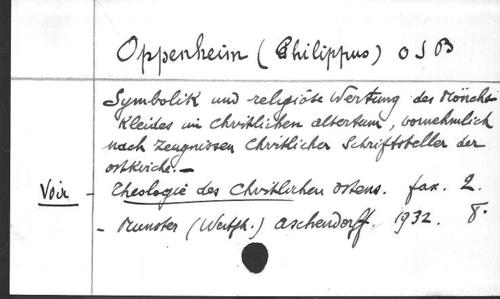 Oppenheim (Philippus) OSB
Symbolik und religiöse Wertung des Mönchs-
Kleides im Christlichen altertum, vornehmlich
nach Zeugnissen Christlicher Schriftsteller der
ostkirche.—
Voir - Theologie des Christlichen ostens. fax. 2.
- Munster (Westf.) Aschendorff. 1932. 8.